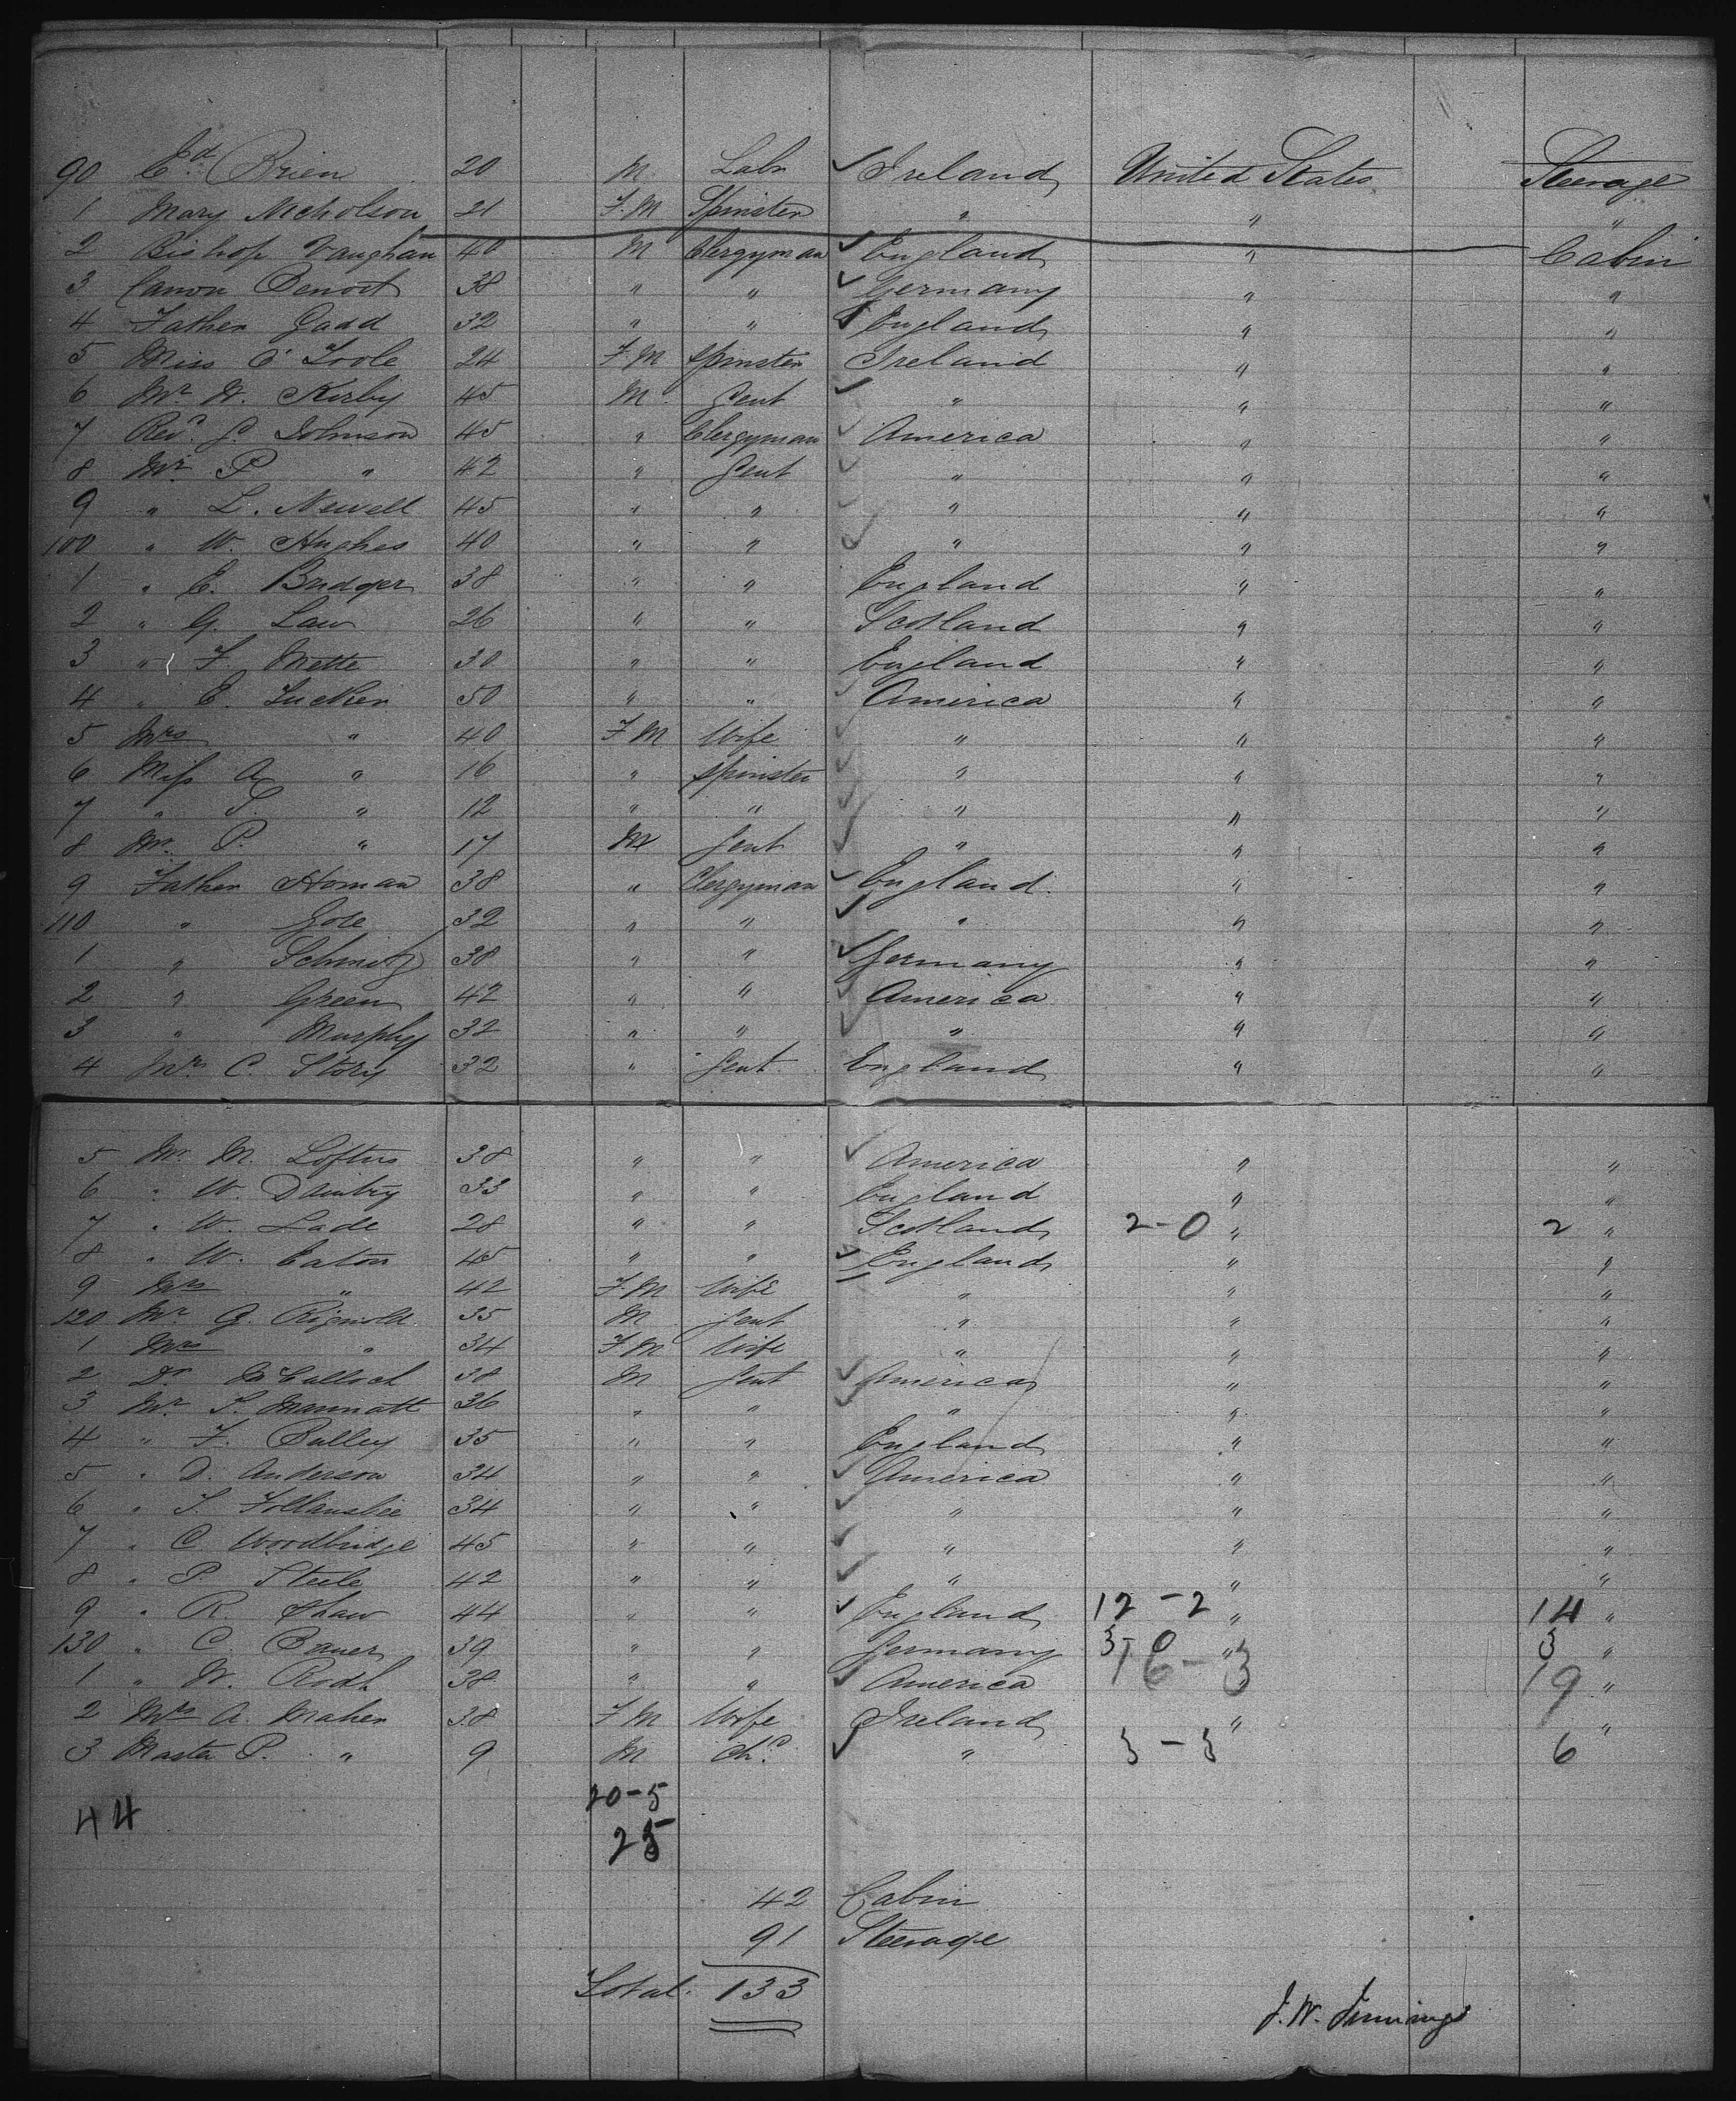 90 Ed. Brien 20 M Labr Ireland United States Steerage
1 Mary Nicholson 21 F.M Spinster " " "
2 Bishop Vaughan 40 M Clergyman England " Cabin
3 Canon Benoit 38 " " Germany " "
4 Father Gadd 32 " " England " "
5 Miss O'Toole 24 F.M Spinster Ireland " "
6 Mr. W. Kirby 45 M Gent " " "
7 Revd. J. Johnson 45 " Clergyman America " "
8 Mr. P " 42 " Gent " " "
9 " L. Newell 45 " " " " "
100 " W. Hughes 40 " " " " "
1 " E. Bridger 38 " " England " "
2 " G. Law 26 " " Scotland " "
3 " F. Mette 30 " " England " "
4 " E. Lucken 50 " " America " "
5 Mrs " 40 F M Wife " " "
6 Miss A " 16 " Spinster " " "
7 " S. " 12 " " " " "
8 Mr. P. " 17 M Gent " " "
9 Father Homan 38 " Clergyman England " "
110 " Gore 32 " " " " "
1 " Schmitz 38 " " Germany " "
2 " Green 42 " " America " "
3 " Murphy 32 " " " " "
4 Mr. C. Story 32 " Gent England " "
5 Mr. M. Loftus 38 " " America " "
6 " W. Dantry 33 " " England " "
7 " W. Lade 28 " " Scotland 2-0 " 2 "
8 " W. Eaton 45 " " England " "
9 Mrs " 42 F.M Wife " " "
120 Mr. G. Rignold 35 M Gent " " "
1 Mrs " 34 F M Wife " " "
2 Dr. McCulloch 38 M Gent America " "
3 Mr. S. Marmatt 36 " " " " "
4 " F. Bulley 35 " " England " "
5 " D. Anderson 34 " " America " "
6 " S Follansbee 34 " " " " "
7 " C Woodbridge 45 " " " " "
8 " P. Steele 42 " " " " "
9 " R. Shaw 44 " " England 12-2 " 14 "
130 " C. Bauer 39 " " Germany 3-0 " 3 "
1 " W. Rodh 38 " " America 16-3 " 19 "
2 Mrs A. Maher 38 F M Wife Ireland " "
3 Master P. " 9 M Chd. " 3-3 6
20-5
44
25
42 Cabin
91 Steerage
Total. 133
J. W. Jennings